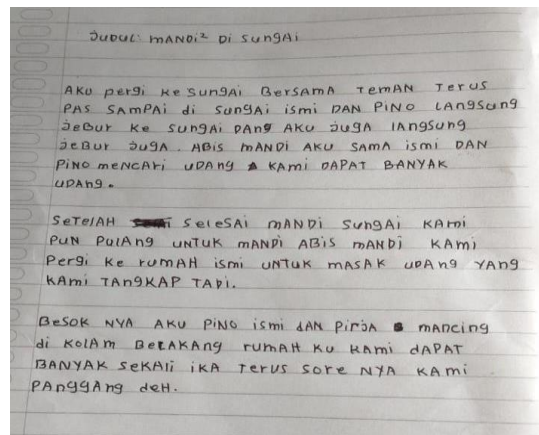 JUDUL: MANDI² DI SUNGAI
AKU PERGI KE SUNGAI BERSAMA TEMAN TERUS
PAS SAMPAI di SUNGAI ismi DAN PINO LANGSUNG
JEBUR KE SUNGAI DANG AKU JUGA LANGSUNG
JEBUR JUGA. ABIS MANDI AKU SAMA ismi DAN
PINO MENCARI UDANG KAMI DAPAT BANYAK
UDANG.
SETELAH SELESAI MANDI SUNGAI KAMI
PUN PULANG UNTUK MANDI ABIS MANDI KAMI
PERGI KE RUMAH ISMI UNTUK MASAK UDANG YANG
KAMI TANGKAP TADI.
BESOK NYA AKU PINO ismi dAN PIRJA MANCING
di KOLAM BELAKANG RUMAH KU KAMI dAPAT
BANYAK SEKALI IKA TERUS SORE NYA KAMI
PANGGANG deH.